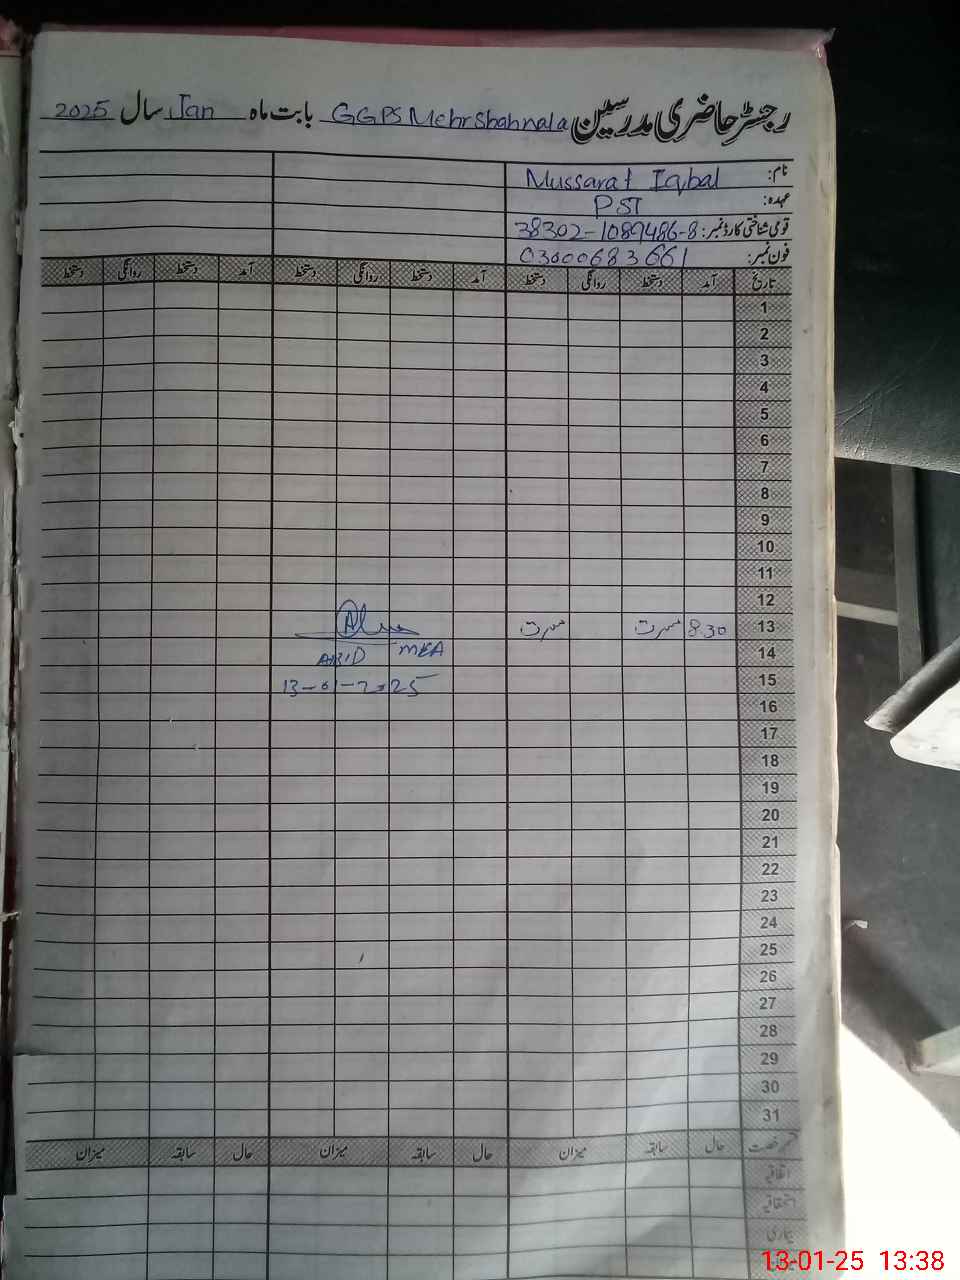 رجسٹر حاضری مدرسین GGPS Mehr Shah nala بابت ماہ Jan سال 2025
نام: Mussarat Iqbal
عہدہ: PST
قومی شناختی کارڈ نمبر: 38302-1089486-8
فون نمبر: 03000683661
تاریخ آمد دستخط روانگی دستخط آمد دستخط روانگی دستخط آمد دستخط روانگی دستخط
1
2
3
4
5
6
7
8
9
10
11
12
13 8.30 مسرت مسرت
14 ABID MEA
15 13-01-2025
16
17
18
19
20
21
22
23
24
25
26
27
28
29
30
31
قسم رخصت حال سابقہ میزان حال سابقہ میزان حال سابقہ میزان
اتفاقیہ
استحقاقیہ
بیماری
13-01-25 13:38